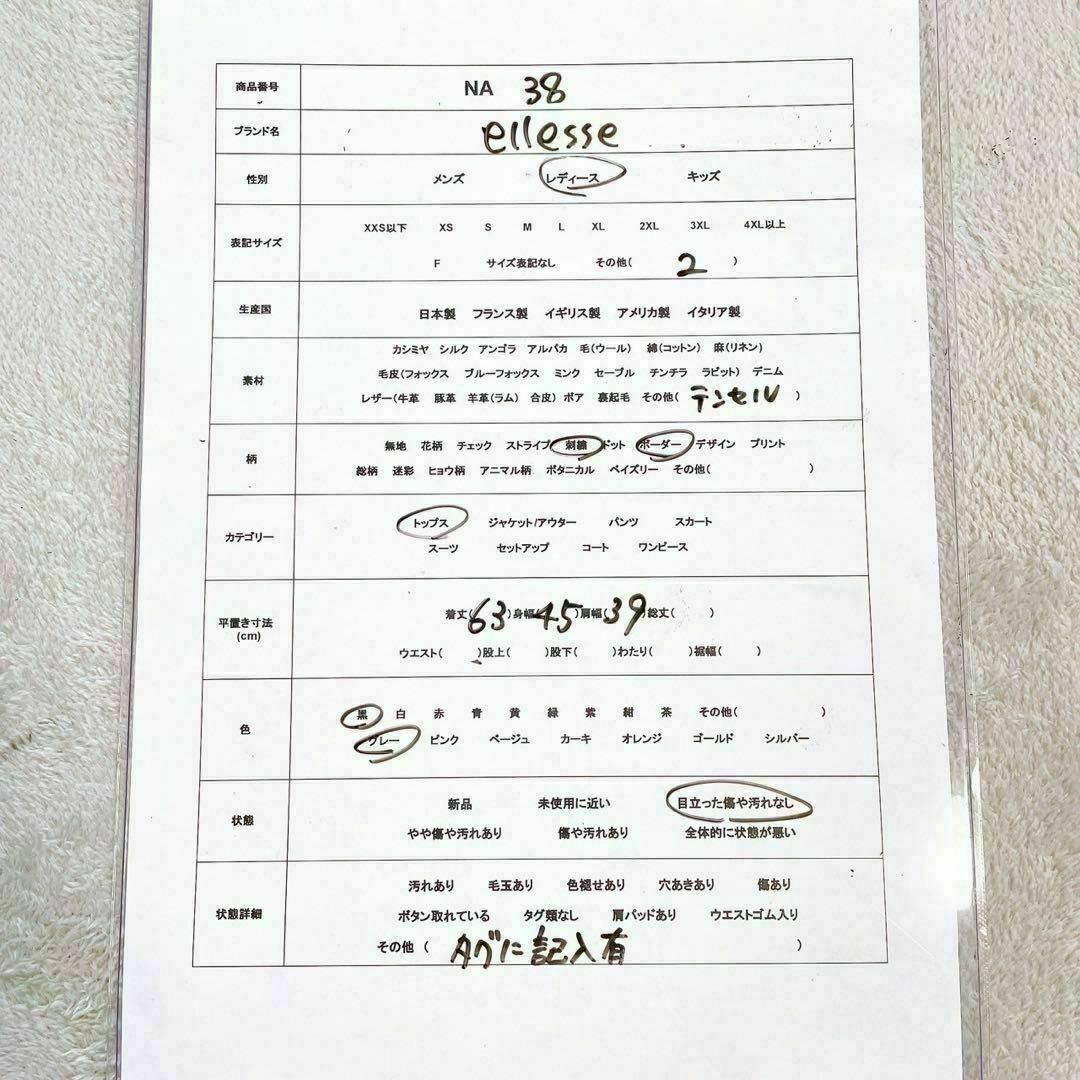 商品番号 NA 38
ブランド名 ellesse
性別 メンズ レディース キッズ
表記サイズ XXS以下 XS S M L XL 2XL 3XL 4XL以上
F サイズ表記なし その他( 2 )
生産国 日本製 フランス製 イギリス製 アメリカ製 イタリア製
素材 カシミヤ シルク アンゴラ アルパカ 毛(ウール) 綿(コットン) 麻(リネン)
毛皮(フォックス ブルーフォックス ミンク セーブル チンチラ ラビット) デニム
レザー(牛革 豚革 羊革(ラム) 合皮) ボア 裏起毛 その他( テンセル )
柄 無地 花柄 チェック ストライプ 刺繍 ドット ボーダー デザイン プリント
総柄 迷彩 ヒョウ柄 アニマル柄 ボタニカル ペイズリー その他( )
カテゴリー トップス ジャケット/アウター パンツ スカート
スーツ セットアップ コート ワンピース
平置き寸法
(cm)
着丈( 63 )身幅( 45 )肩幅( 39 )総丈( )
ウエスト( )股上( )股下( )わたり( )裾幅( )
色 黒 白 赤 青 黄 緑 紫 紺 茶 その他( )
グレー ピンク ベージュ カーキ オレンジ ゴールド シルバー
状態 新品 未使用に近い 目立った傷や汚れなし
やや傷や汚れあり 傷や汚れあり 全体的に状態が悪い
状態詳細 汚れあり 毛玉あり 色褪せあり 穴あきあり 傷あり
ボタン取れている タグ類なし 肩パッドあり ウエストゴム入り
その他( タグに記入有 )